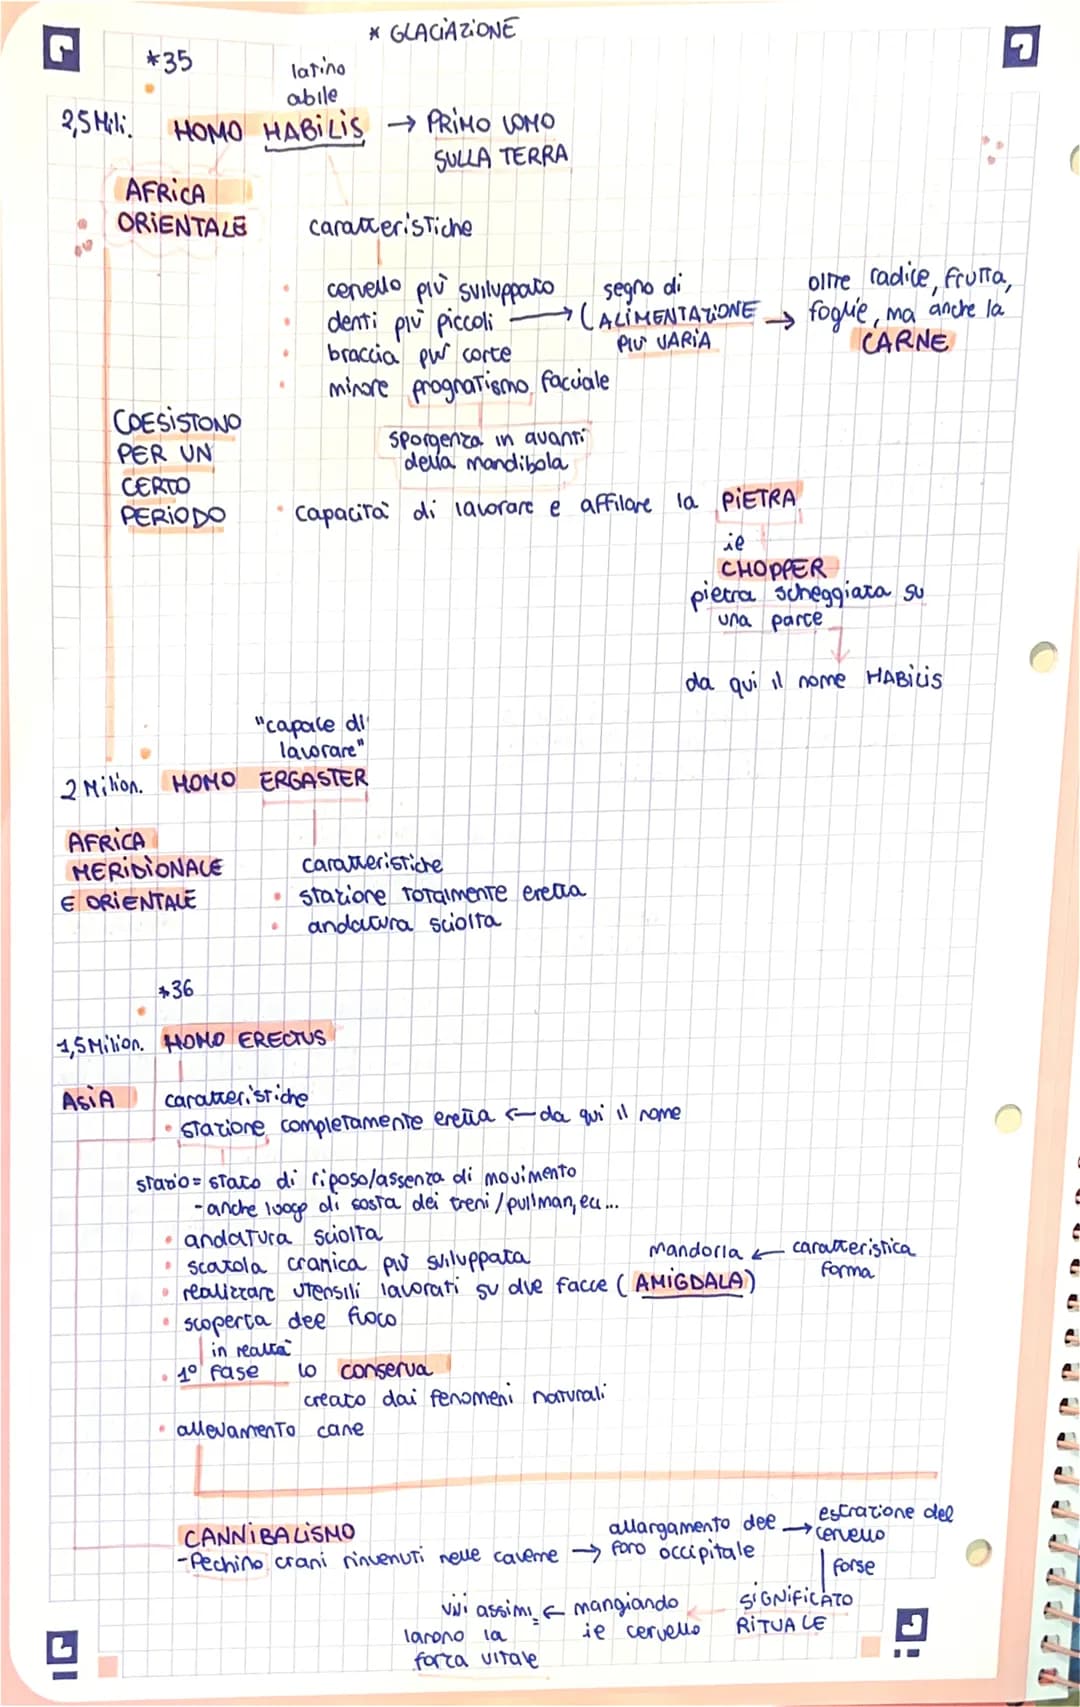 * GLACIAZIONE
*35
latino
abile
2,5 Mili. HOMO HABILIS → PRIMO UOMO
SULLA TERRA
AFRICA
ORIENTALE
caratteristiche
cervello più sviluppato
denti più piccoli → ( segno di
ALIMENTAZIONE
PIU' VARIA
→ oltre radice, frutta,
foglie, ma anche la
CARNE
braccia più corte
minore prognatismo facciale
sporgenza in avanti
della mandibola
COESISTONO
PER UN
CERTO
PERIODO
capacità di lavorare e affilare la PIETRA
ie
CHOPPER
pietra scheggiata su
una parte
da qui il nome HABILIS
"capace di
lavorare"
2 Milion. HOMO ERGASTER
AFRICA
MERIDIONALE
E ORIENTALE
caratteristiche
stazione totalmente eretta
andatura sciolta
*36
1,5 Milion. HOMO ERECTUS
ASIA
caratteristiche
stazione completamente eretta ← da qui il nome
stato di riposo/assenza di movimento
- anche luogo di sosta dei treni/pullman, ecc...
andatura sciolta
scatola cranica più sviluppata
mandorla ← caratteristica
forma
realizzare utensili lavorati su due facce (AMIGDALA)
scoperta dee fuoco
in realtà
1° fase lo conserva
creato dai fenomeni naturali
allevamento cane
CANNIBALISMO
- Pechino crani rinvenuti nelle caverne → allargamento dee
foro occipitale
→ estrazione del
cervello
forse
SIGNIFICATO
RITUALE
mangiando
ie cervello
← vivi assimi=
larono la
forza vitale